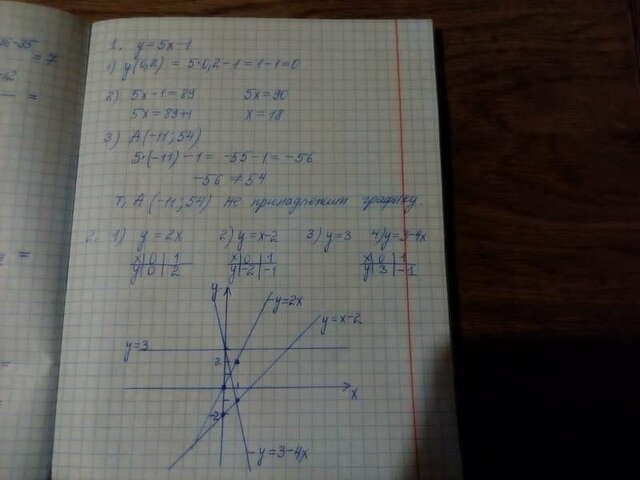 26-35
= 7
=
1. y=5x-1
1) y(0,2) = 5·0,2-1=1-1=0
2) 5x-1=89 5x=90
5x=89+1 x=18
3) A(-11;54)
5·(-11)-1= -55-1=-56
-56≠54
т. A(-11;54) не принадлежит графику.
2. 1) y=2x 2) y=x-2 3) y=3 4) y=3-4x
x 0 1 x 0 1 x 0 1
y 0 2 y -2 -1 y 3 -1
y
y=2x
y=x-2
y=3
2
1
x
-2
y=3-4x